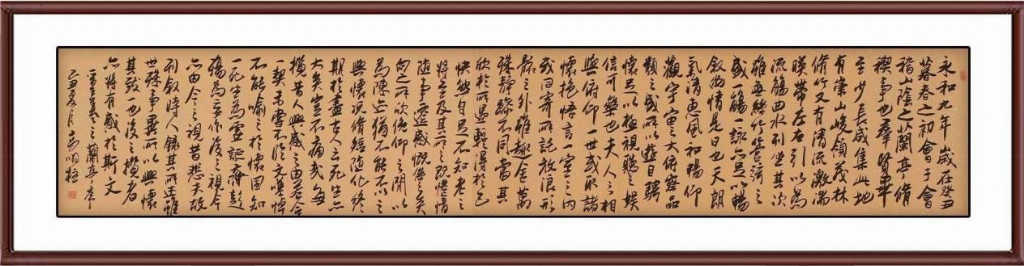 永和九年歲在癸丑
暮春之初會于會
稽山陰之蘭亭脩
禊事也羣賢畢
至少長咸集此地
有崇山峻領茂林
脩竹又有清流激湍
暎帶左右引以為
流觴曲水列坐其次
雖無絲竹管弦之
盛一觴一詠亦足以暢
敘幽情是日也天朗
氣清惠風和暢仰
觀宇宙之大俯察品
類之盛所以遊目騁
懷足以極視聽之娛
信可樂也夫人之相
與俯仰一世或取諸
懷抱悟言一室之內
或因寄所託放浪形
骸之外雖趣舍萬
殊靜躁不同當其
欣於所遇輒得於己
快然自足不知老之
將至及其所之既惓情
隨事遷感慨係之矣
向之所欣俛仰之間以
為陳迹猶不能不以之
興懷況脩短隨化終
期於盡古人云死生亦
大矣豈不痛哉每
攬昔人興感之由若合
一契未嘗不臨文嗟悼
不能喻之於懷固知
一死生為虛誕齊彭
殤為妄作後之視今
亦由今之視昔悲夫故
列敘時人錄其所述雖
世殊事異所以興懷
其致一也後之攬者
亦將有感於斯文
蘭亭序